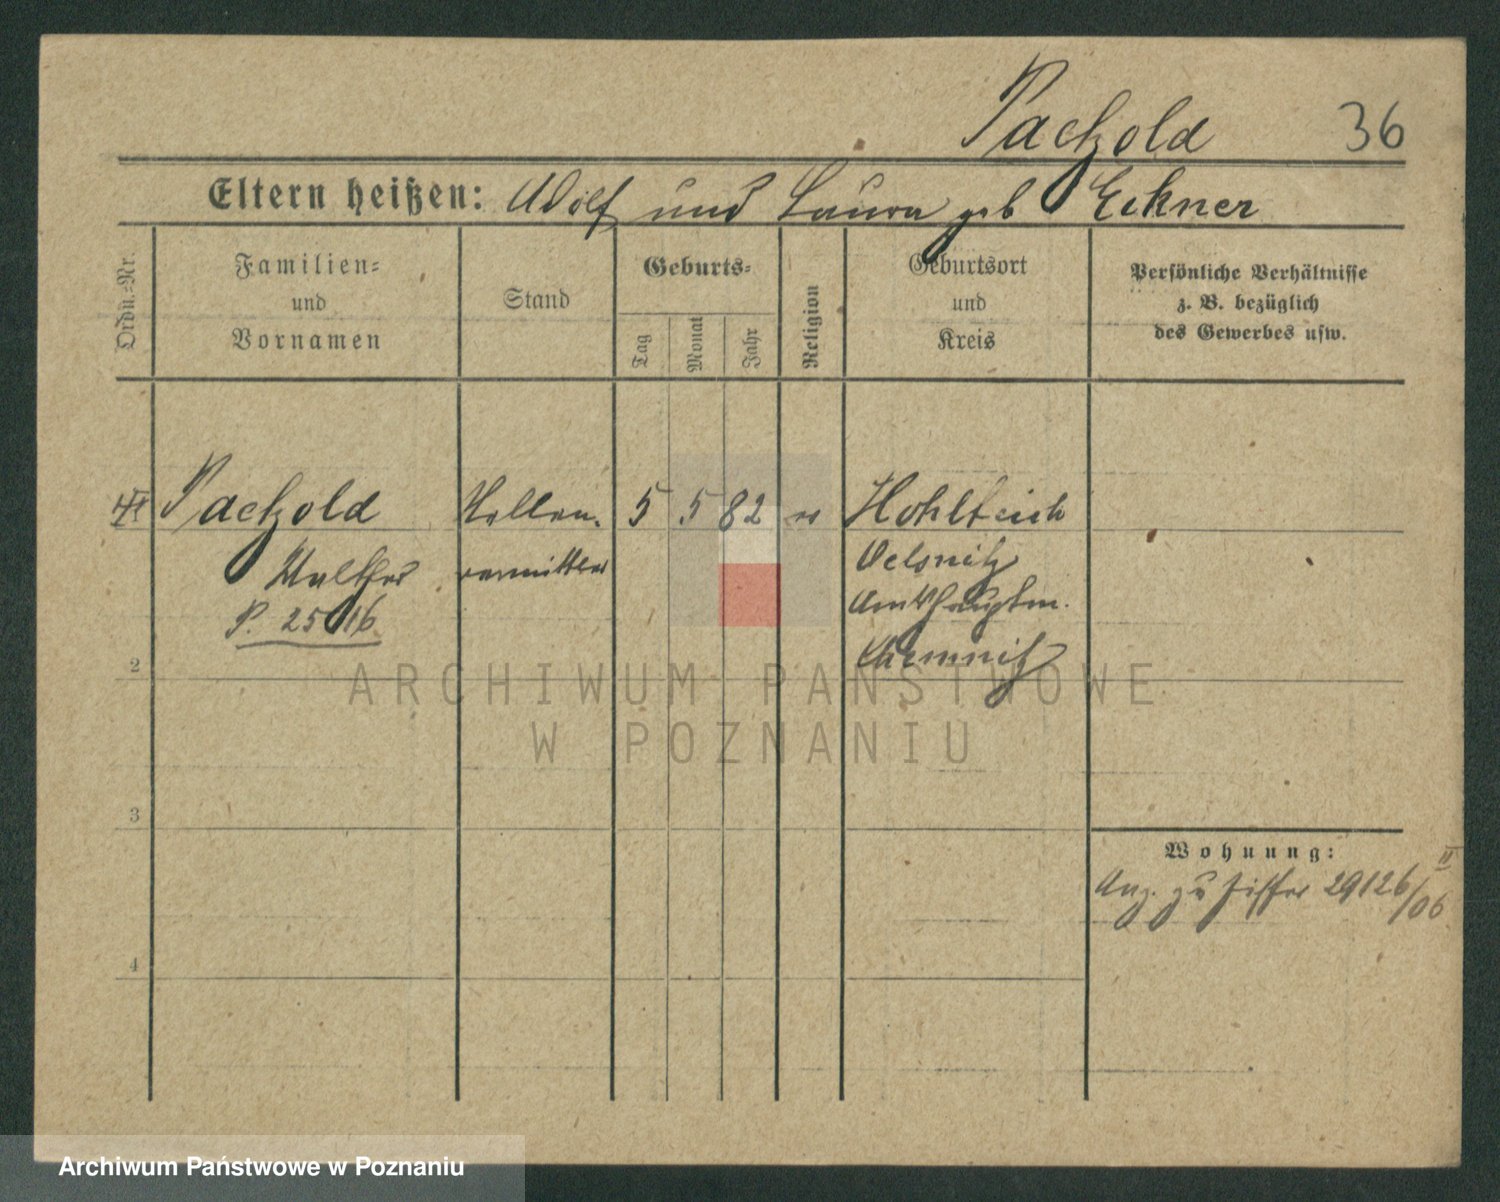 Paetzold 36
Eltern heißen: Adolf und Laura geb Eckner
Ordn.-Nr.
Familien-
und
Vornamen
Stand
Geburts-
Tag
Monat
Jahr
Religion
Geburtsort
und
Kreis
Persönliche Verhältnisse
z. B. bezüglich
des Gewerbes usw.
Paetzold Stellen- 5 5 82 Hohlteich
Walther vermittler Oelsnitz
P. 25 16 Amtshauptm.
Chemnitz
2
3
4
Wohnung:
Anz. zu Ziffer 29126/06 II
ARCHIWUM PAŃSTWOWE
W POZNANIU
Archiwum Państwowe w Poznaniu